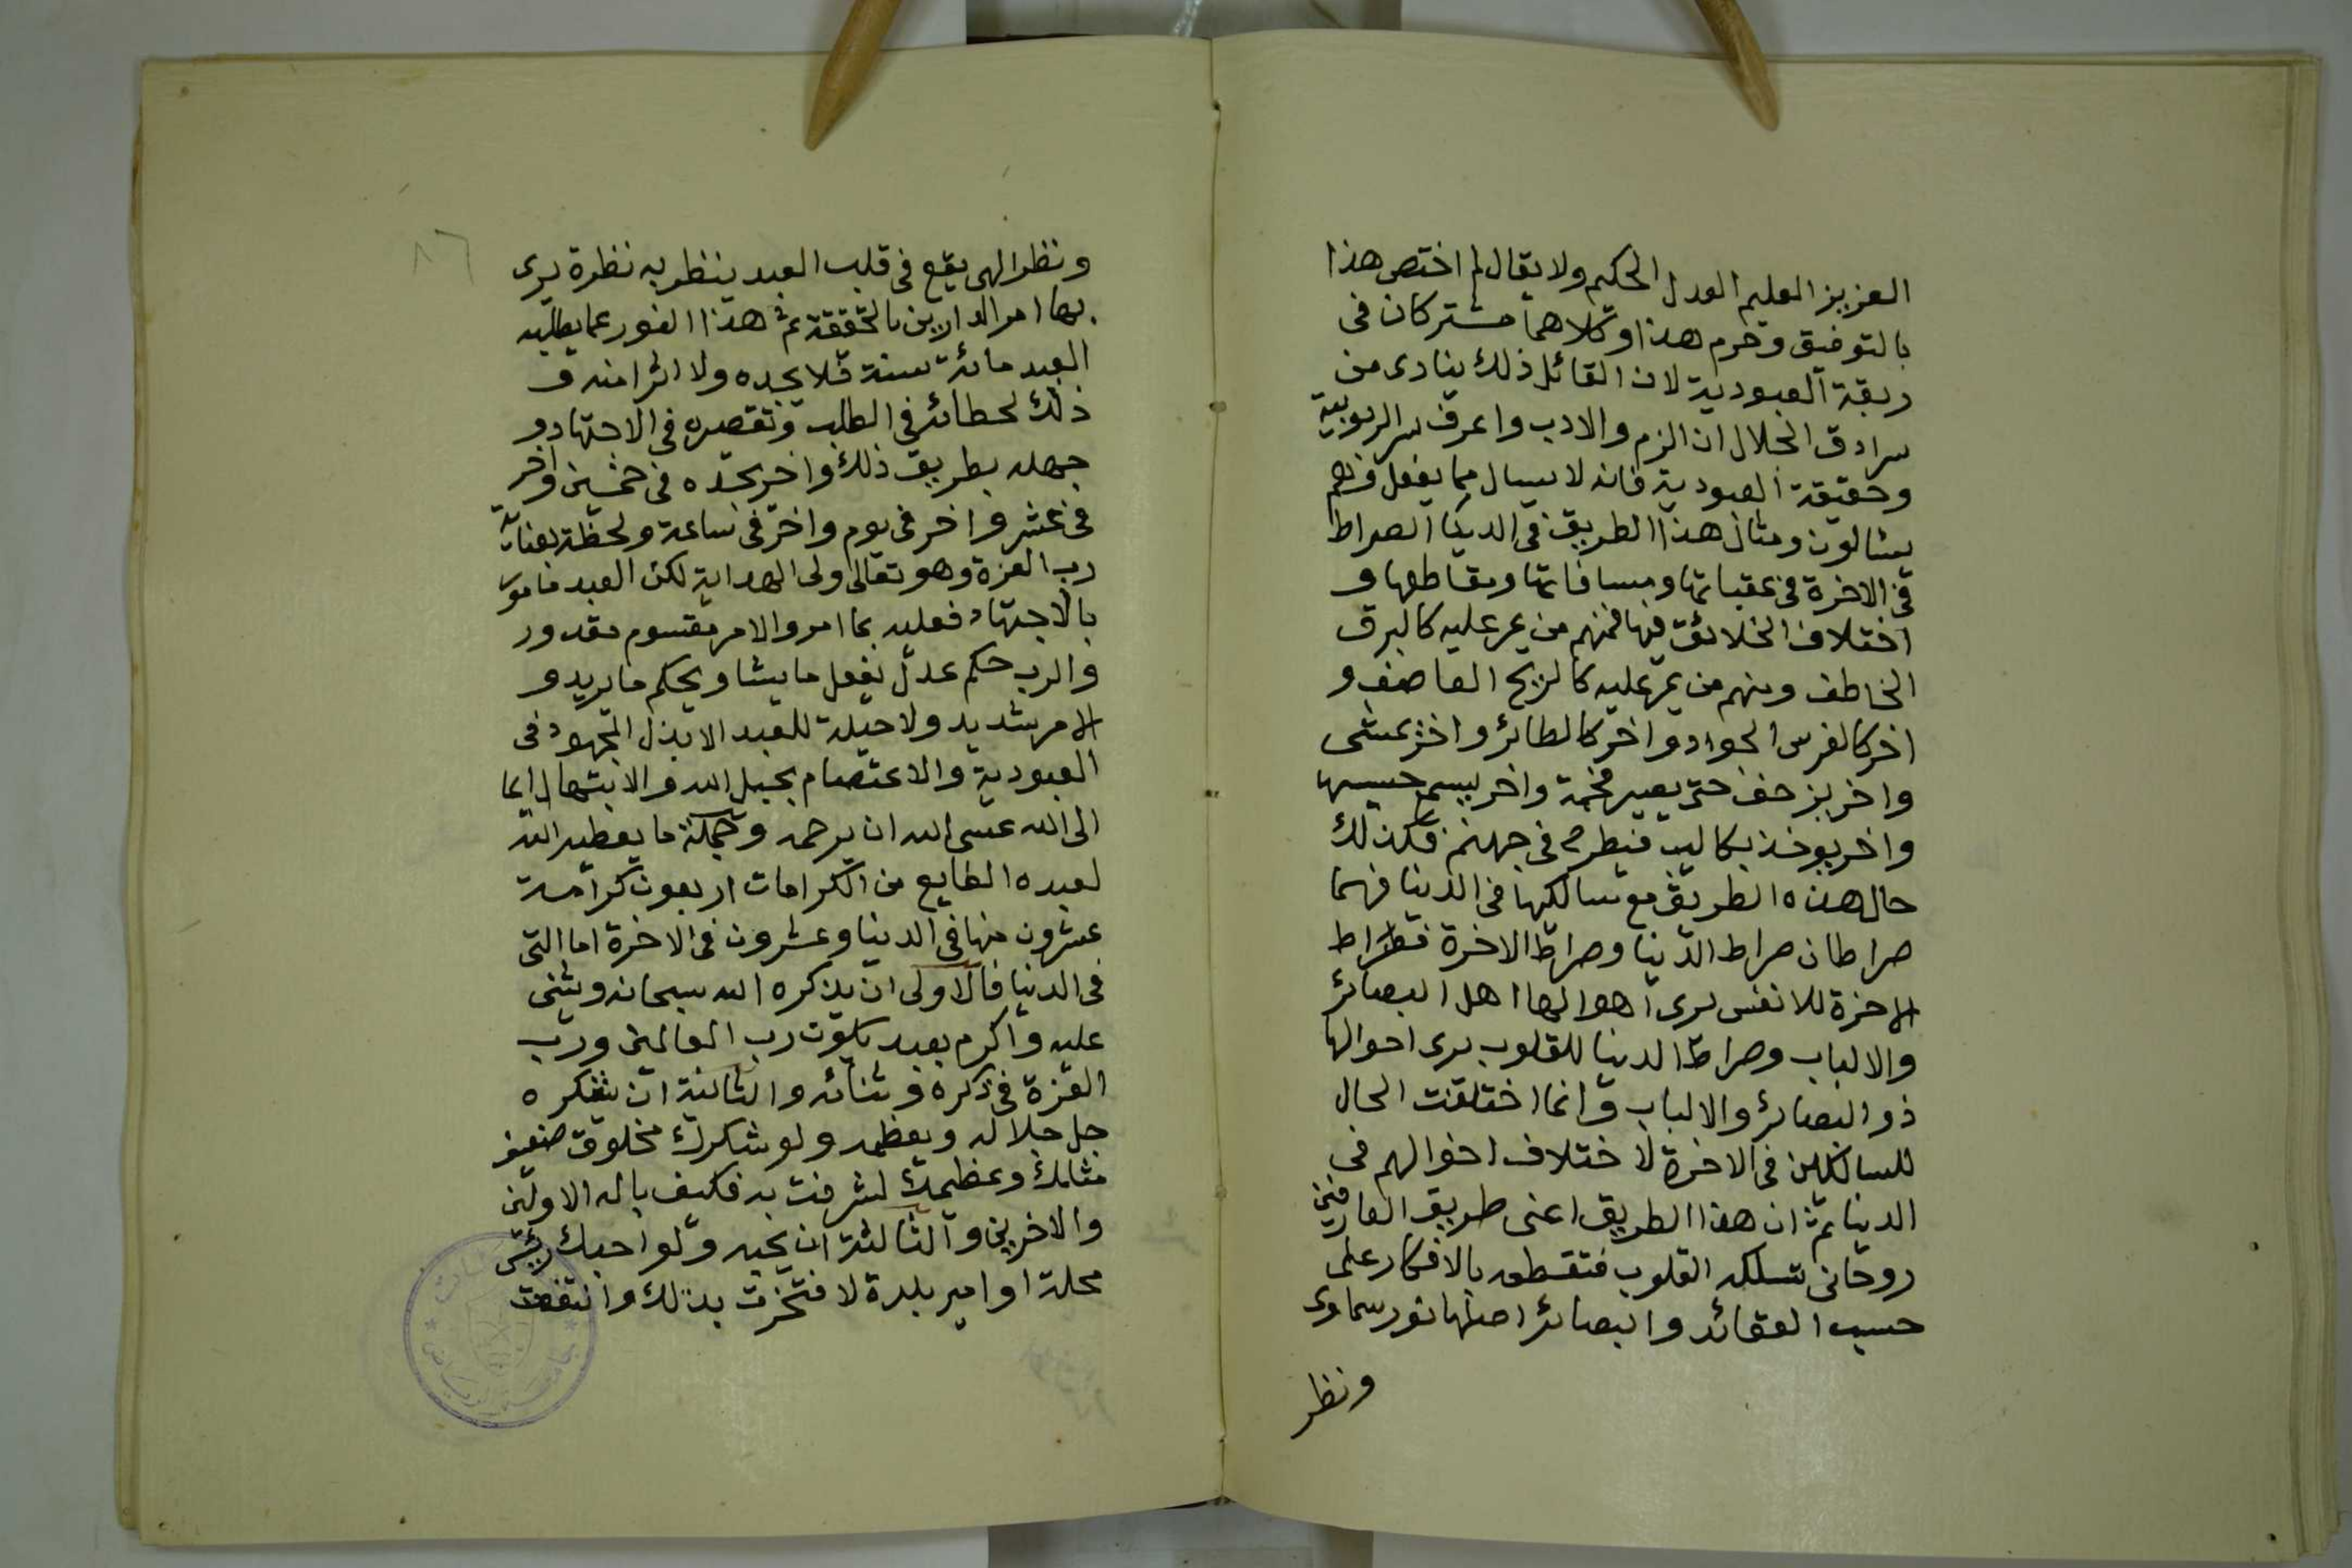 العزيز العليم العدل الحكيم ولا يقال لم اختص هذا
بالتوفيق وحرم هذا وكلاهما مشتركان فى
ربقة العبودية لان القائل ذلك ينادى من
سرادق الجلال ان الزم والادب واعرف سر الربوبية
وحقيقة العبودية فانه لا يسال مما يفعل وهم
يسالون ومثال هذا الطريق فى الدنيا الصراط
فى الاخرة فى عقباتها ومسافاتها ومقاطعها و
اختلاف الخلائق فيها فمنهم من يمر عليه كالبرق
الخاطف ومنهم من يمر عليه كالريح العاصف و
اخر كالفرس الجواد واخر كالطائر واخر يمشى
واخر يزحف حتى يصير فحمة واخر يسمع حسيسها
واخر يوخذ بكاليب فيطرح فى جهنم فكذلك
حال هذه الطريق مع سالكيها فى الدنيا فهما
صراطان صراط الدنيا وصراط الاخرة فصراط
الاخرة للانفس يرى اهوالها اهل البصائر
والالباب وصراط الدنيا للقلوب يرى احوالها
ذو البصائر والالباب وانما اختلفت الحال
للسالكين فى الاخرة لاختلاف احوالهم فى
الدنيا ثم ان هذا الطريق اعنى طريق العارفين
روحانى تسلكه القلوب فتقطعه بالافكار على
حسب العقائد والبصائر اصلها نور سماوى
ونظر
٨٦
ونظر الهى يقع فى قلب العبد ينظر به نظرة يرى
بها امر الدارين بالحقيقة ثم هذا النور عما يطلبه
العبد مائة سنة فلا يجده ولا اثرا منه و
ذلك لخطائه فى الطلب وتقصيره فى الاجتهاد و
جهله بطريق ذلك واخر يجده فى خمسين واخر
فى عشر واخر فى يوم واخر فى ساعة ولحظة بعناية
رب العزة وهو تعالى ولى الهداية لكن العبد مامور
بالاجتهاد فعليه بما امر والامر مقسوم مقدور
والرب حكم عدل يفعل ما يشا ويحكم ما يريد و
الامر شديد ولا حيلة للعبد الا بذل المجهود فى
العبودية والاعتصام بحبل الله والابتهال دايما
الى الله عسى الله ان يرحمه وجملة ما يعطيه الله
لعبده الطايع من الكرامات اربعون كرامة
عشرون منها فى الدنيا وعشرون فى الاخرة اما التى
فى الدنيا فالاولى ان يذكره الله سبحانه ويثنى
عليه واكرم بعبد يكون رب العالمين ورب
العزة فى ذكره وثنائه والثانية ان يشكره
جل جلاله ويعظمه ولو شكرك مخلوق ضعيف
مثلك وعظمك لشرفت به فكيف باله الاولين
والاخرين والثالثة ان يحبه ولو احبك رئيس
محلة او امير بلدة لافتخرت بذلك وانتفعت